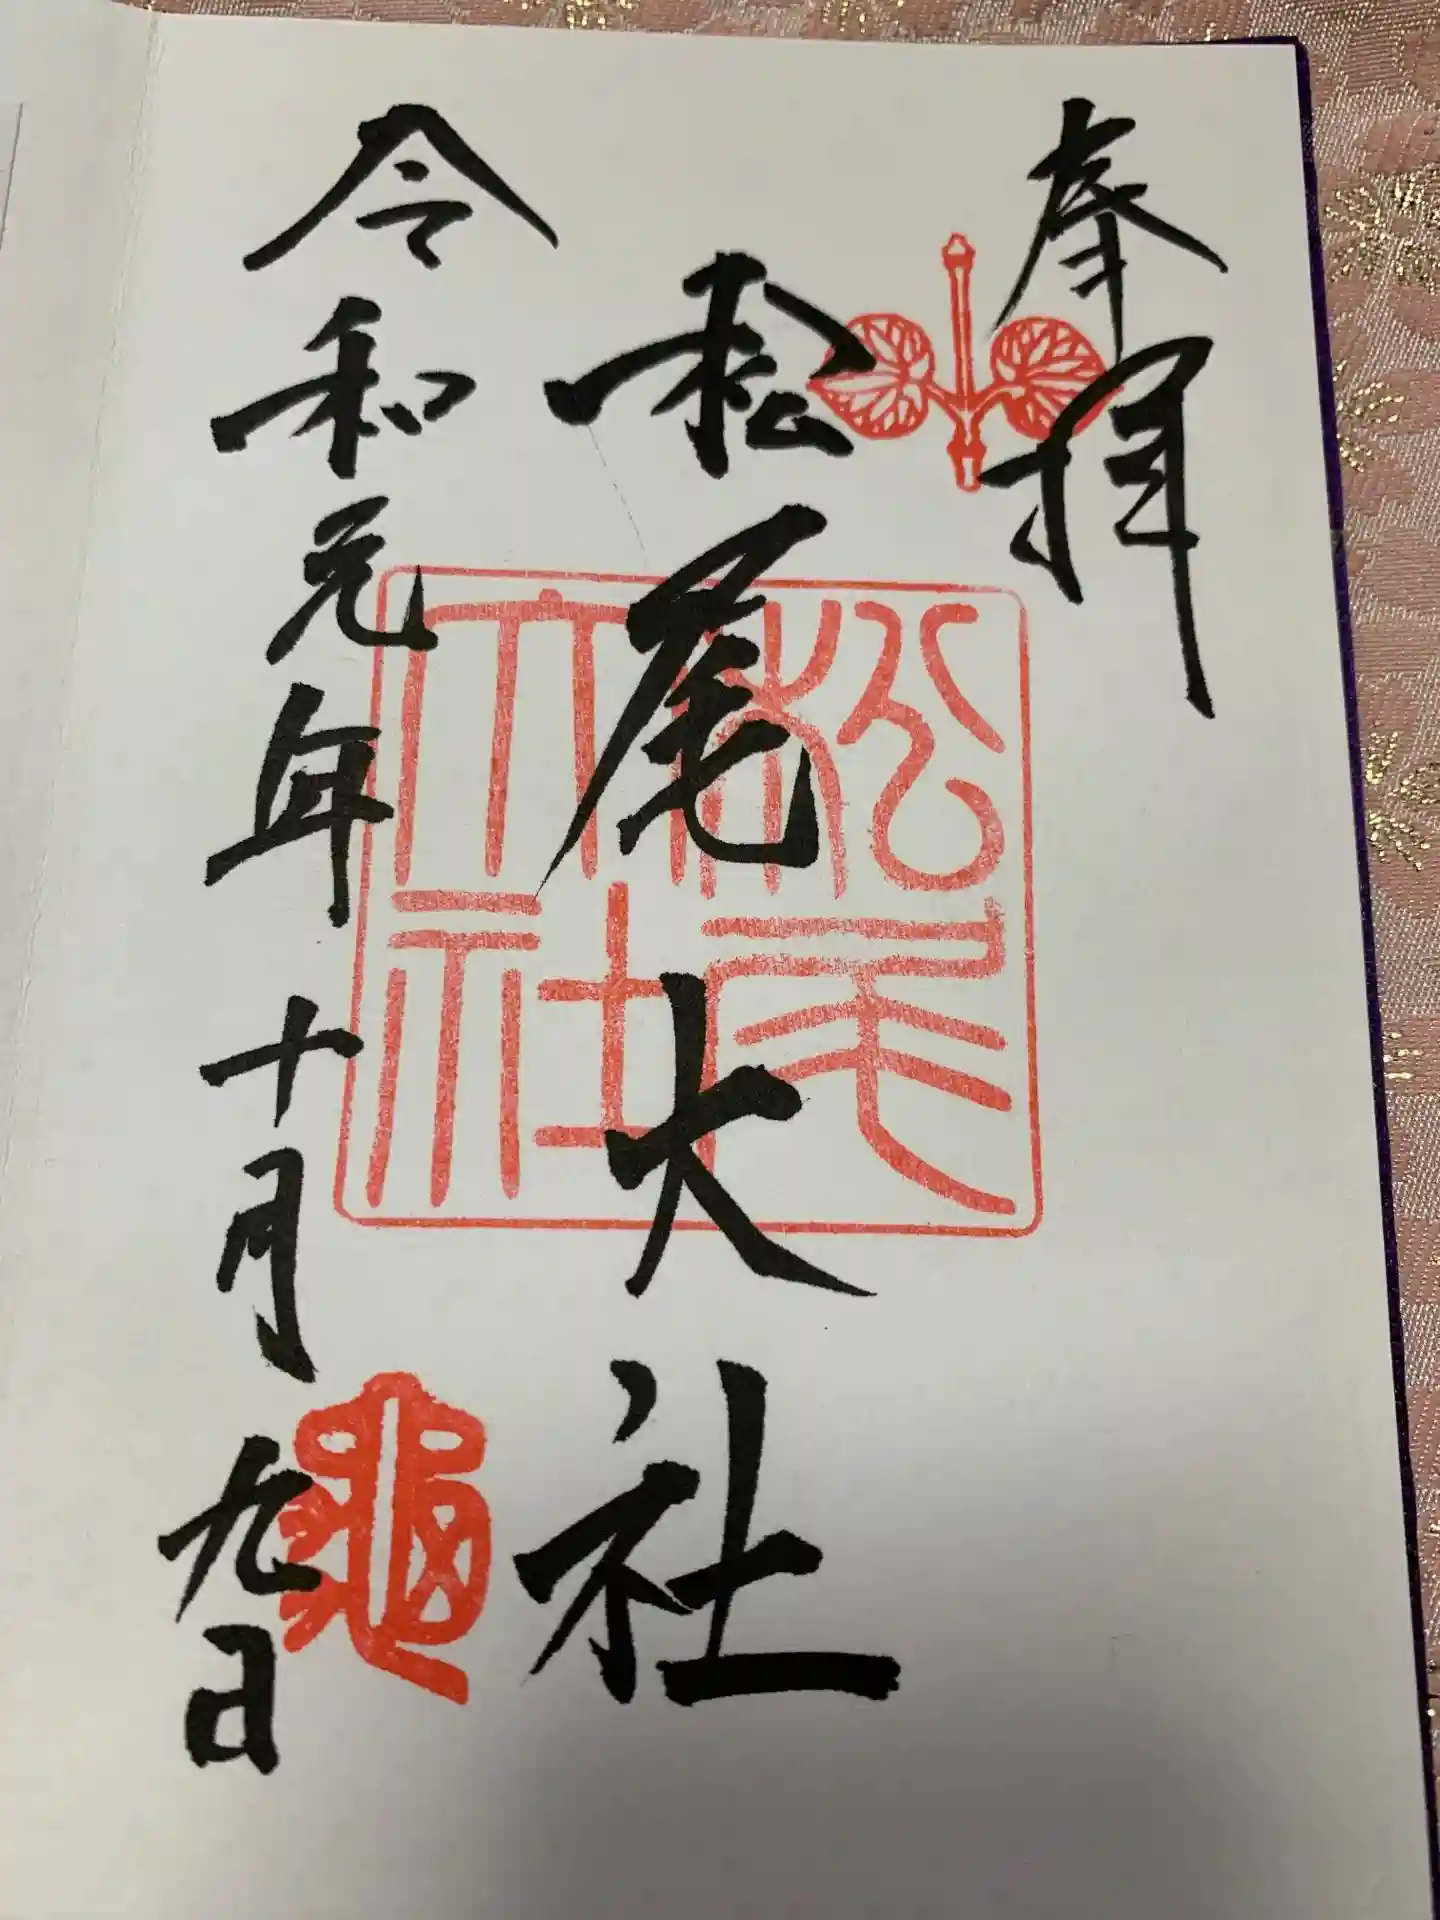 奉拝
松尾大社
松尾大社
令和元年十月九日